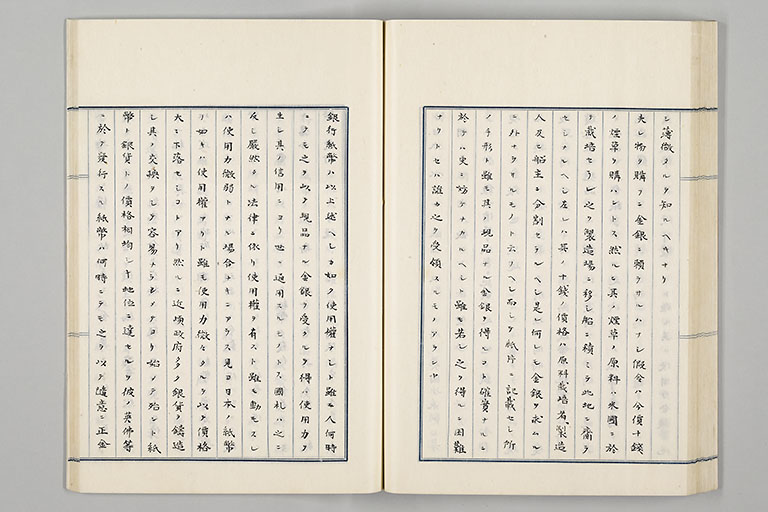 シ薄微タルヲ知ルヘキナリ
夫レ物ヲ購フニ金銀ニ頼ラサルハナシ假令ハ今價十錢
ノ煙草ヲ購ハントス然ルニ其ノ煙草ノ原料ハ米國ニ於
テ栽培セラレ之ヲ製造場ニ移シ船ニ積ミテ此地ニ齎ラ
セシナルヘシ左レハ其ノ十錢ノ價格ハ原料栽培者、製造
人及ヒ船主ニ分割セラルヘシ是レ何レモ金銀ヲ求ムル
ニ外ナラサルモノト云フヘシ而シテ紙片ニ記載セル所
ノ手形ト雖モ其ノ現品ナル金銀ヲ得ルニ確實ナルニ
於テハ更ニ妨ケナカルヘシト雖モ若シ之ヲ得ルニ困難
ナリトセハ誰カ之ヲ受領スルモノアランヤ
銀行紙幣ハ以上述ヘシカ如ク使用權ナシト雖モ人何時
ニテモ之ヲ以テ現品ナル金銀ヲ受クルヲ得ハ使用力ヲ
生シ其ノ信用ニヨリ世ニ通用スルモノトス國札ハ之ニ
反シ嚴然タル法律ニ依リ使用權ヲ有スト雖モ動モスレ
ハ使用力微弱トナル場合ナキニアラス見ヨ日本ノ紙幣
ノ如キハ使用權アリト雖モ使用力微々タルヲ以テ價格
大ニ下落セシコトアリ然ルニ近頃政府多ク銀貨ヲ鑄造
シ其ノ交換ヲシテ容易ナラシメタヨリ始メテ殆ント紙
幣ト銀貨トノ價格相均シキ地位ニ達セルヲ彼ノ英佛等
ニ於テ發行スル紙幣ハ何時ニテモ之ヲ以テ隨意ニ正金